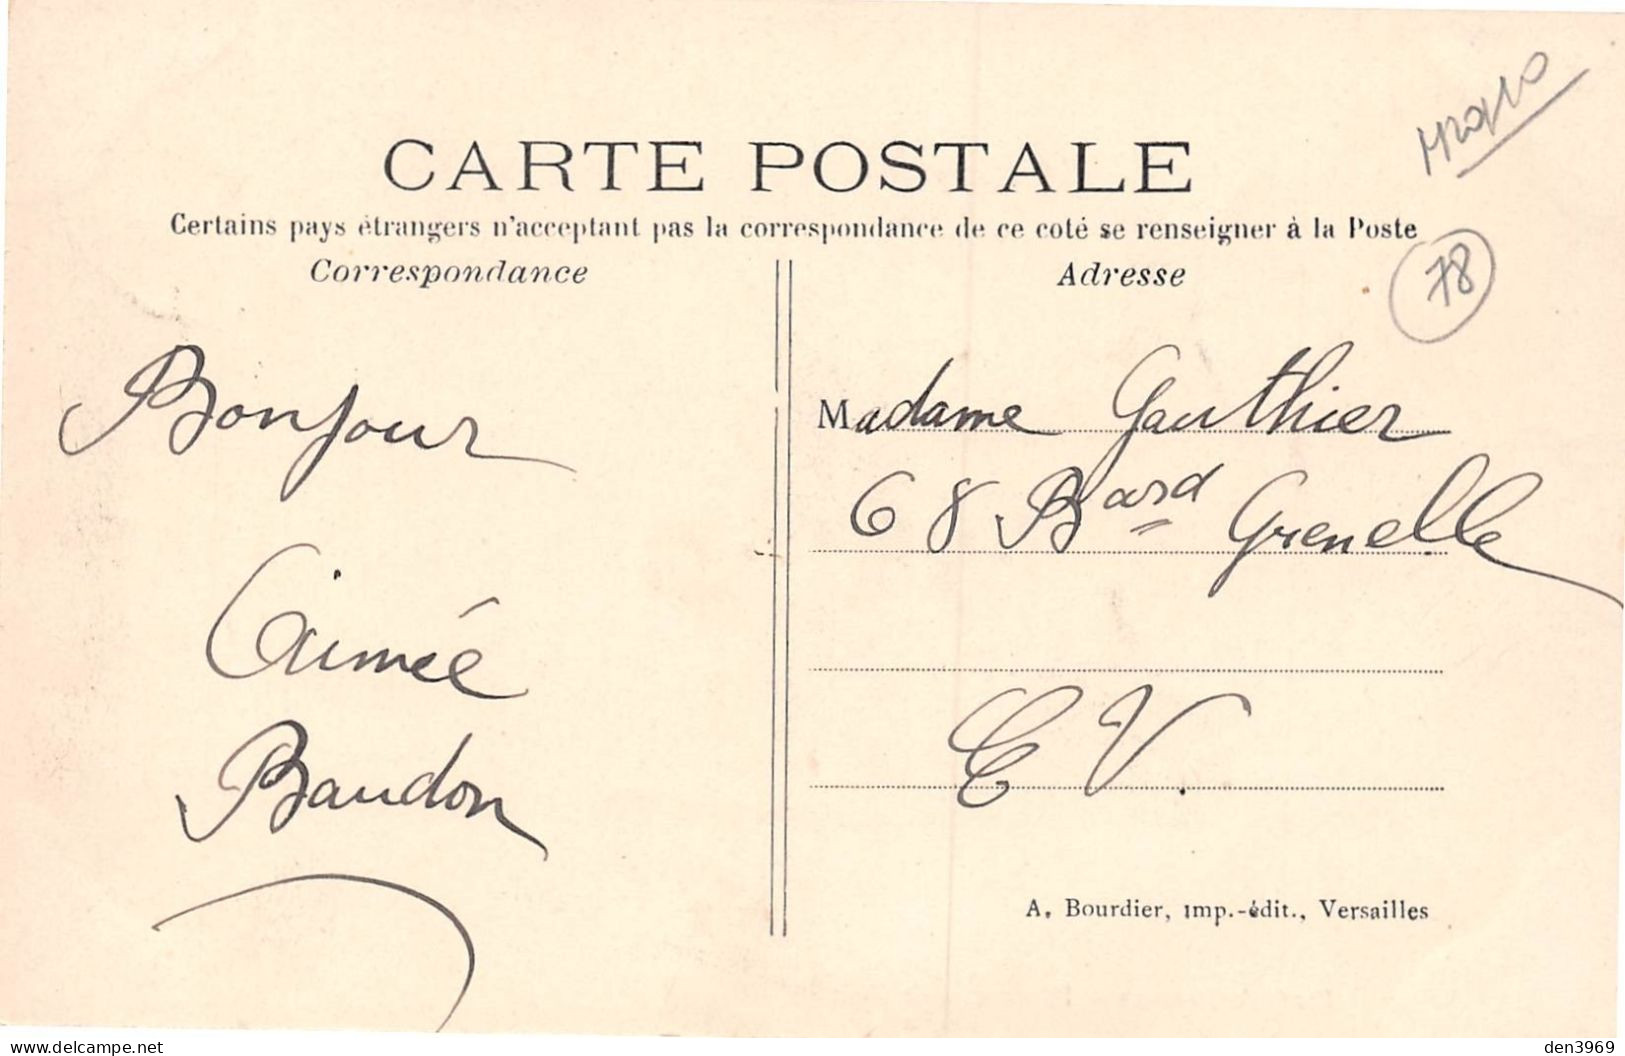 CARTE POSTALE
Certains pays étrangers n'acceptant pas la correspondance de ce coté se renseigner à la Poste
Correspondance
Adresse
78
Bonjour
Aimée
Baudon
Madame Gauthier
68 Bard Grenelle
E V.
A. Bourdier, imp.-édit., Versailles
delcampe.net
den3969